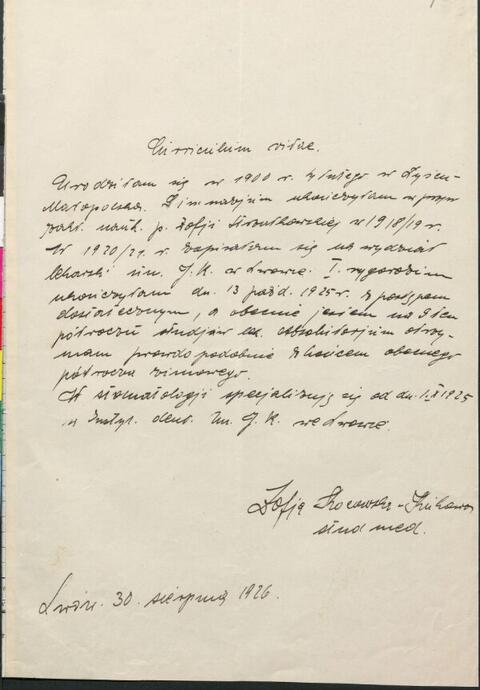 Curriculum vitae.
Urodziłam się w 1900 r. 4 lutego w Łyścu-
Małopolska. Gimnazjum ukończyłam w pryw
zakł. nauk. p. Zofji Strzałkowskiej w 1918/19 r.
W 1920/21. r. zapisałam się na wydział
lekarski uniw. J. K. w Lwowie. I. rygorozum
ukończyłam dn. 13 paźd. 1925 r. z postępem
dostatecznym, a obecnie jestem na 9tem
półroczu studjów a absolutorjum otrzy-
mam prawdopodobnie z końcem obecnego
półrocza zimowego.
W stomatologji specjalizuję się od dn. 1.X 1925
w Instyt. dent. Un. J. K. we Lwowie.
Zofja
stud med.
Lwów. 30. sierpnia 1926.